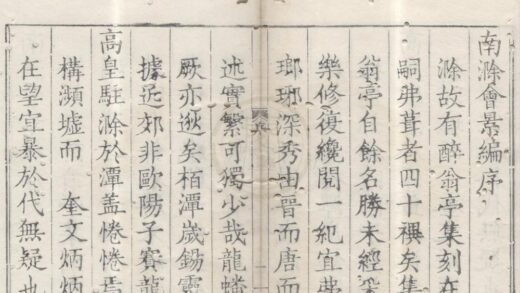 南滁會景編序
滁故有醉翁亭集刻在
嗣弗葺者四十禩矣集
翁亭自餘名勝未經
樂修復纔閱一紀宜弗
瑯琊深秀由晉而唐而
述實繁可獨少哉龍蟠
厥亦逖矣栢潭歲錫靈
據近郊非歐陽子賽龍
高皇駐滁於潭盖惓惓焉
構瀕墟而 奎文炳炳
在望宜暴於代無疑也